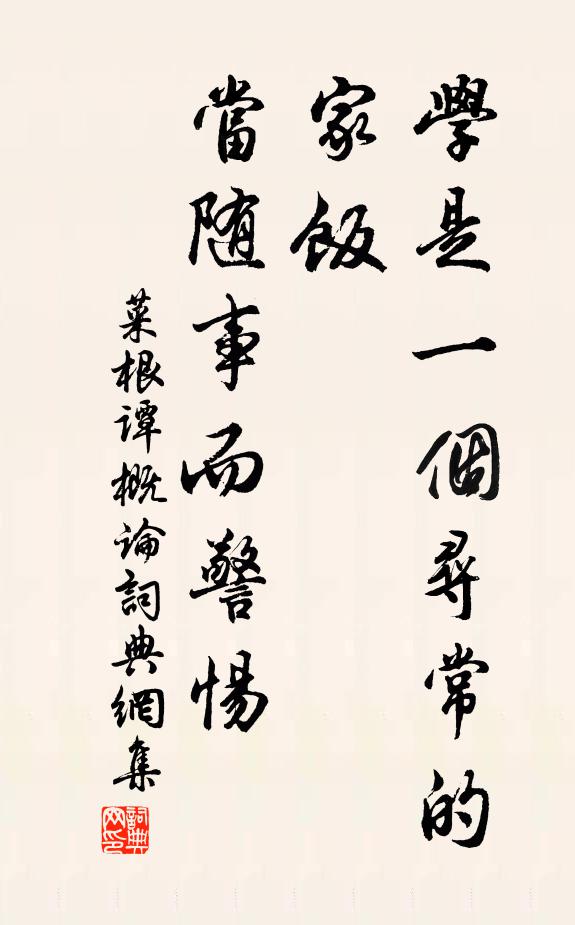 學是一個尋常的
家飯
當随事而警惕
菜根谭概论詞典網集
詞典网印